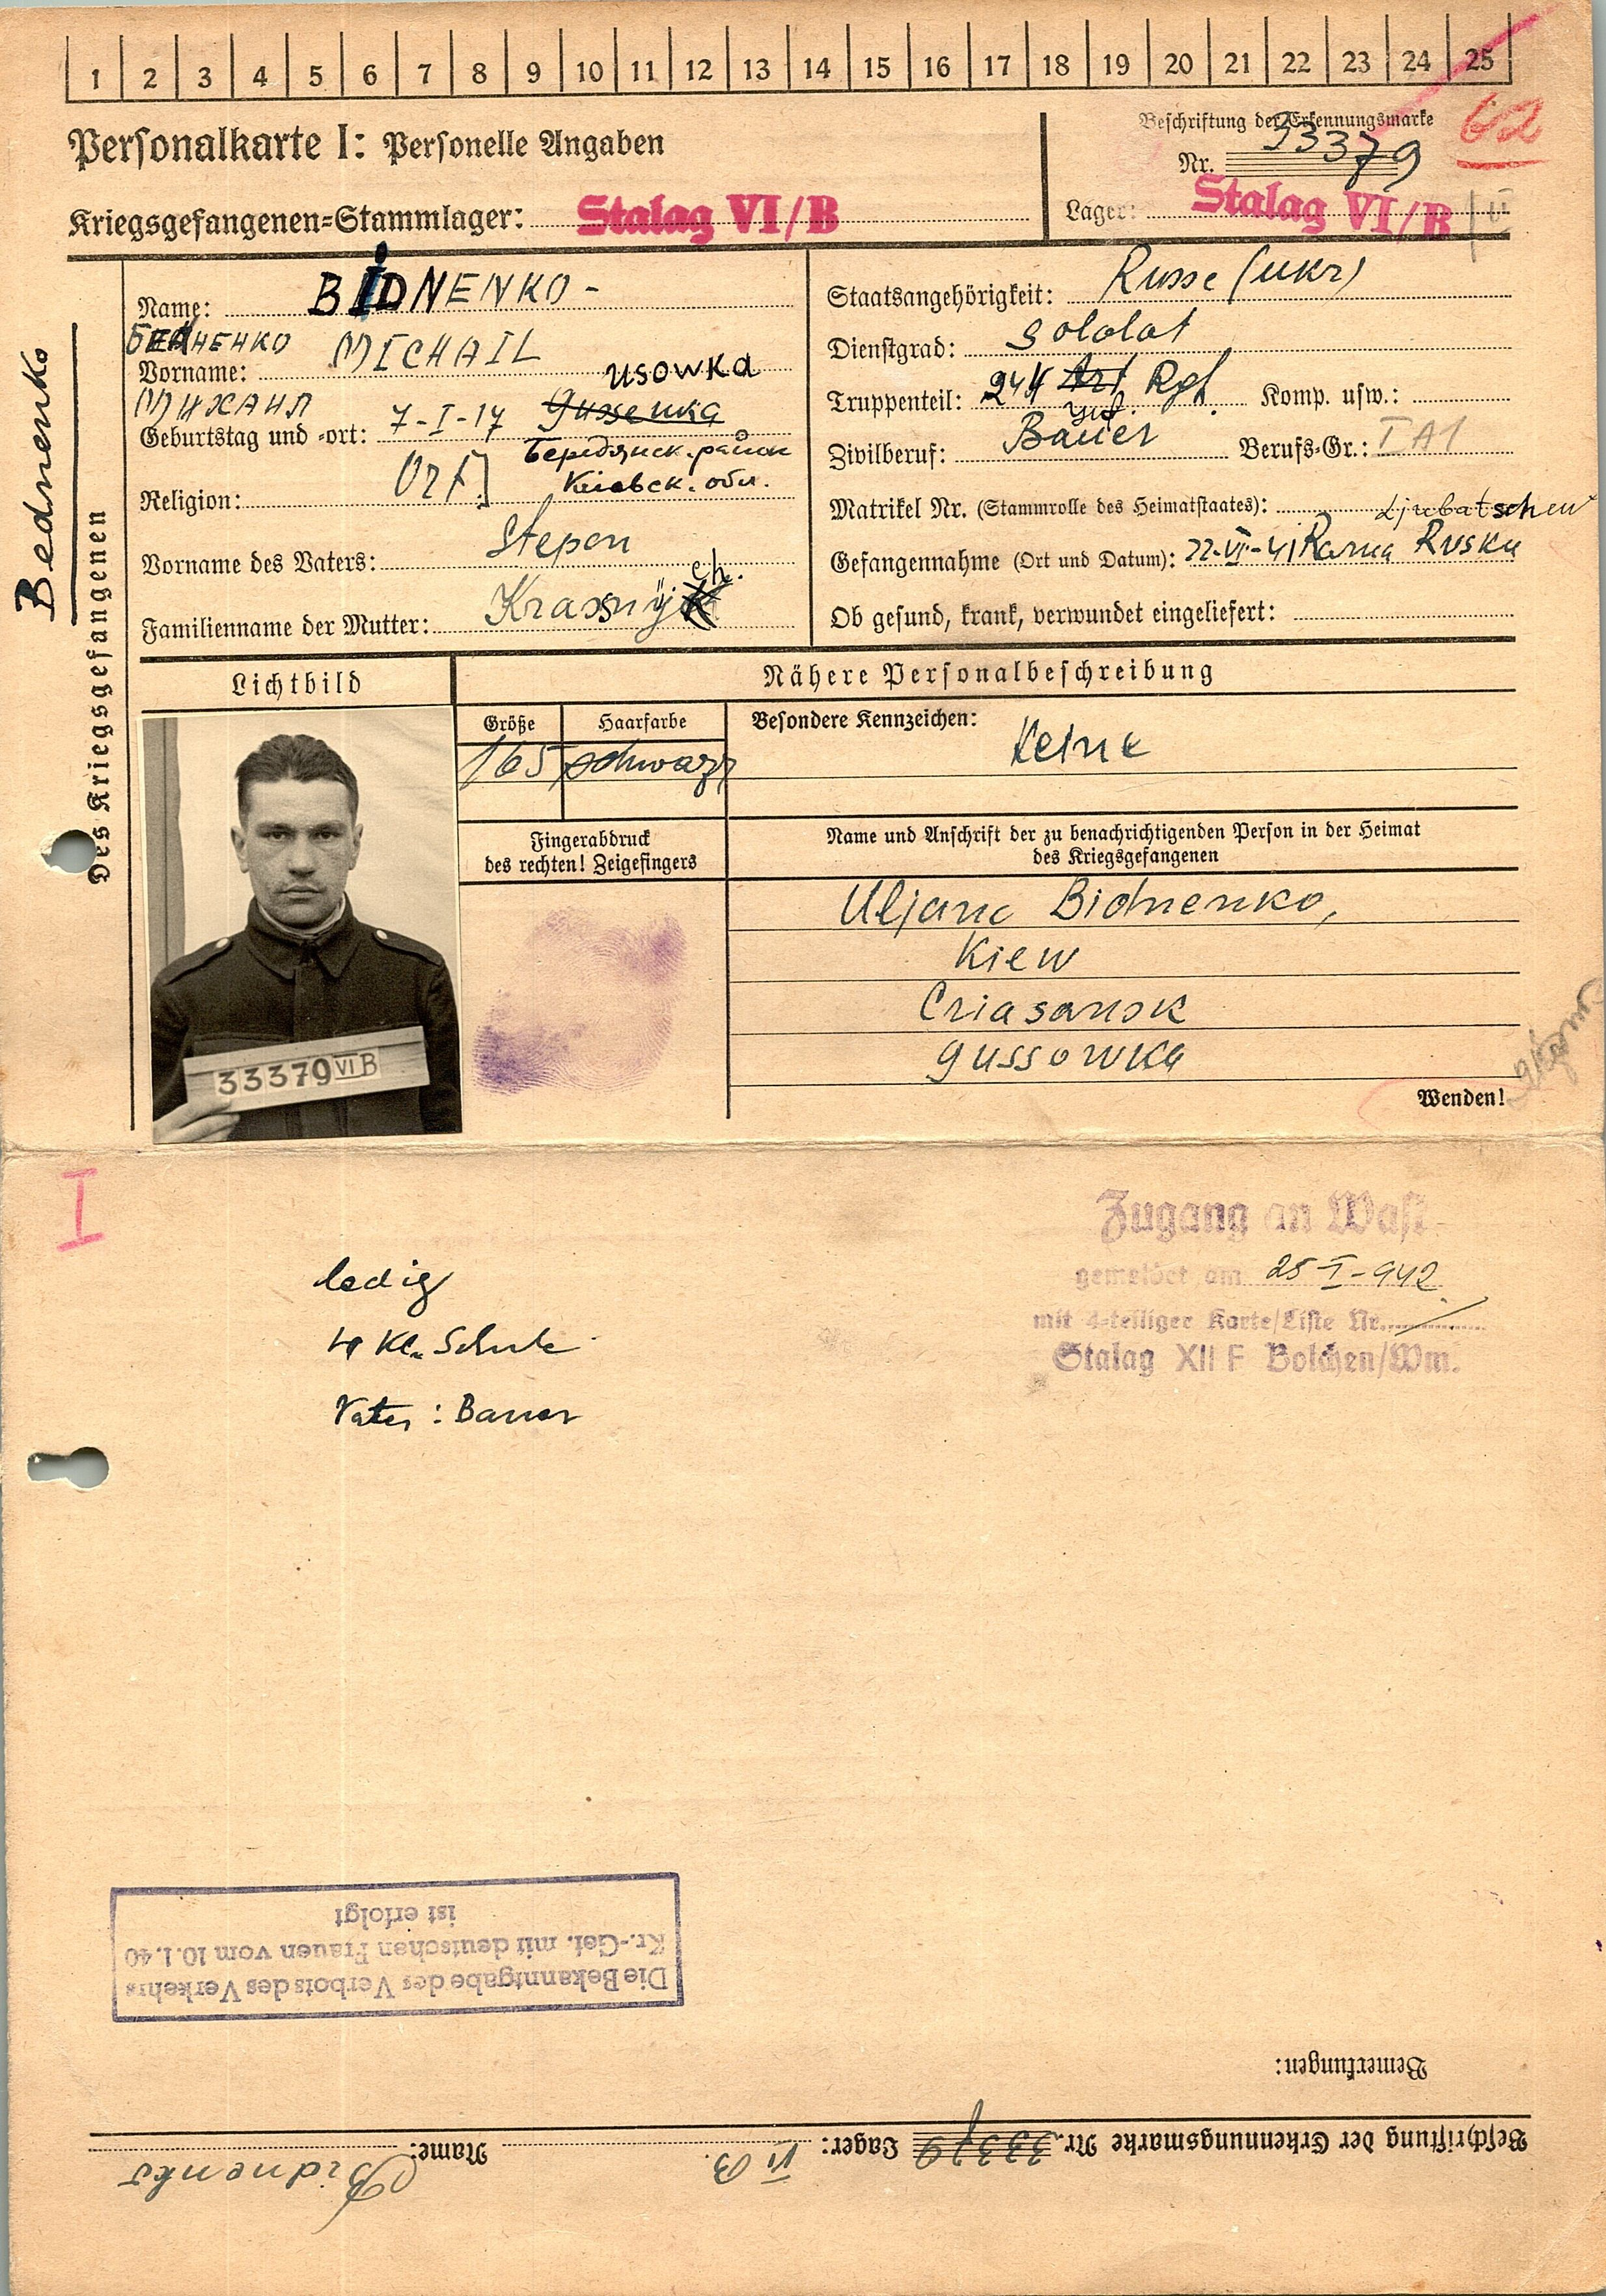 1 2 3 4 5 6 7 8 9 10 11 12 13 14 15 16 17 18 19 20 21 22 23 24 25
Personalkarte I: Personelle Angaben
Beschriftung der Erkennungsmarke
Nr. 33379
62
Kriegsgefangenen=Stammlager: Stalag VI/B
Lager: Stalag VI/B
Bednenko
Des Kriegsgefangenen
Name: BIDNENKO -
БЕДНЕНКО
Vorname: MICHAIL
МИХАИЛ
usowka
Geburtstag und -ort: 7-I-17
район
Киевск. обл.
Religion: Ort
Vorname des Vaters: Stepan
Familienname der Mutter: Krassnÿch.
Staatsangehörigkeit: Russe (ukr)
Dienstgrad: Soldat
Truppenteil: 244 Art Rgt. Komp. usw.:
Zivilberuf: Bauer Berufs=Gr.: I A1
Matrikel Nr. (Stammrolle des Heimatstaates):
Ljubatschew
Gefangennahme (Ort und Datum): 22-VI-41 Rawa Ruska
Ob gesund, krank, verwundet eingeliefert:
Lichtbild
Nähere Personalbeschreibung
Größe Haarfarbe
165 schwarz
Besondere Kennzeichen: Keine
Fingerabdruck
des rechten! Zeigefingers
Name und Anschrift der zu benachrichtigenden Person in der Heimat
des Kriegsgefangenen
Uljana Bidnenko,
Kiew
Criasansk
Gussowka
33379 VI B
Wenden!
I
Zugang an Wast
gemeldet am 25-I-942
mit 4-teiliger Karte/Liste Nr.
Stalag XII F Bolchen/Wm.
ledig
4 Kl. Schule
Vater: Bauer
Die Bekanntgabe des Verbots des Verkehrs
Kr.-Gef. mit deutschen Frauen vom 10.1.40
ist erfolgt
Bemerkungen:
Beschriftung der Erkennungsmarke Nr. 33379 Lager: VI B Name: Bidnenko